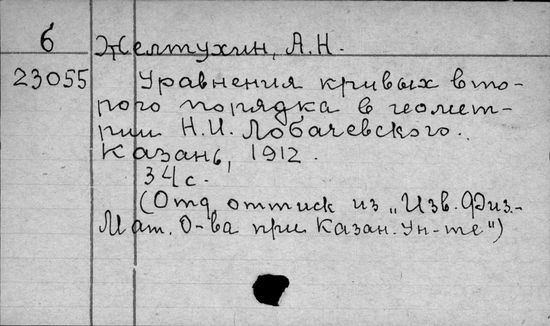 6 Желтухин, А.Н.
23055 Уравнения кривых вто-
рого порядка в геомет-
рии Н.И. Лобачевского.
Казань, 1912.
34 с.
(Отд. оттиск из „Изв. Физ.-
Мат. О-ва при Казан. Ун-те")